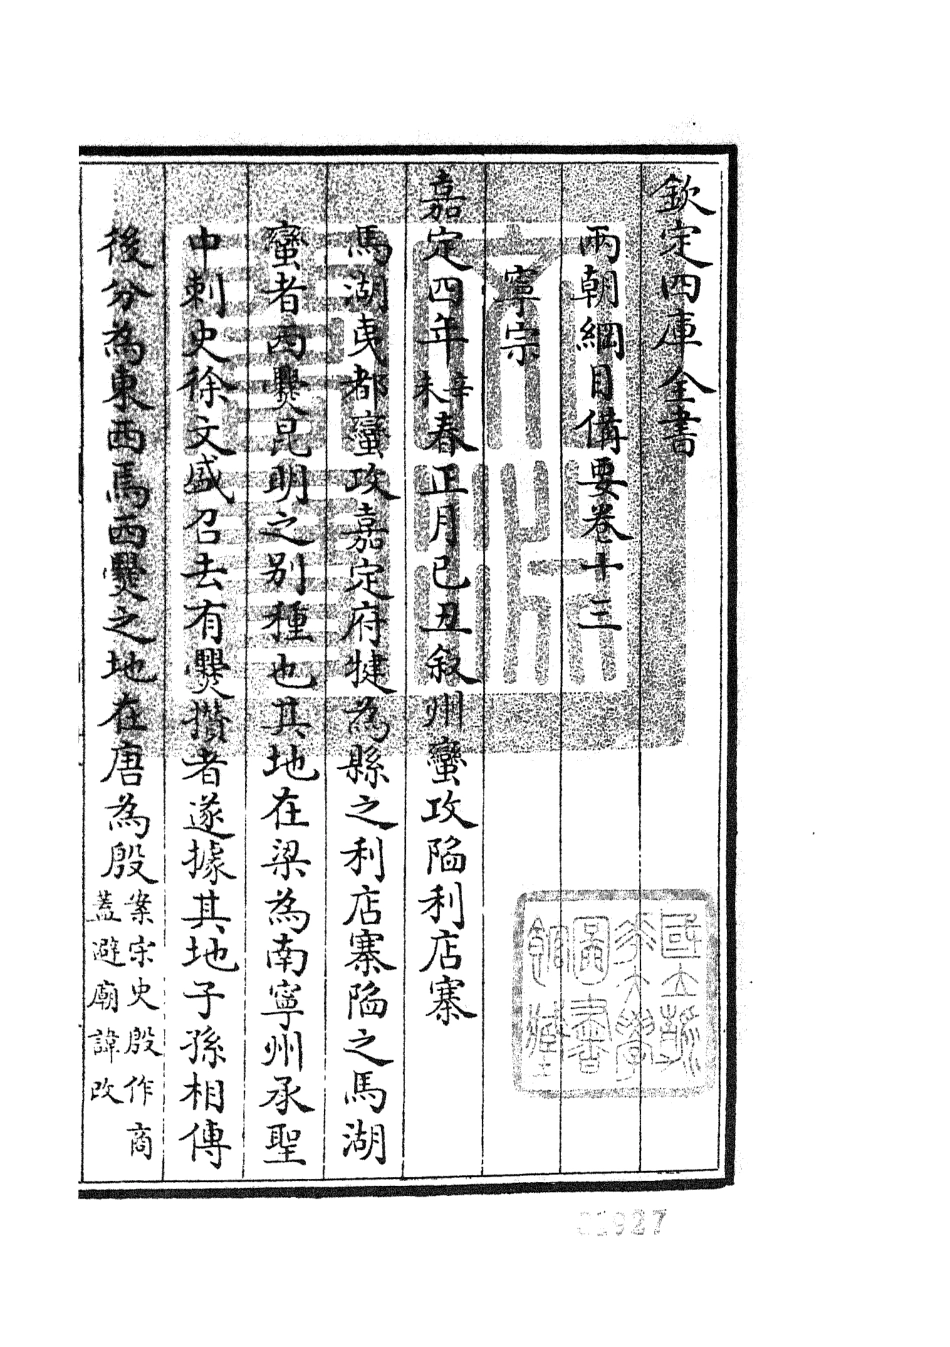 欽定四庫全書
兩朝綱目備要卷十三
寧宗
嘉定四年辛未春正月己丑叙州蠻攻陷利店寨
馬湖夷都蠻攻嘉定府犍為縣之利店寨陷之馬湖
蠻者西爨昆明之别種也其地在梁為南寧州承聖
中刺史徐文盛召去有爨攢者遂據其地子孫相傳
後分為東西焉西爨之地在唐為殷案宋史殷作商蓋避廟諱改
國立
大學
圖書
館藏
927